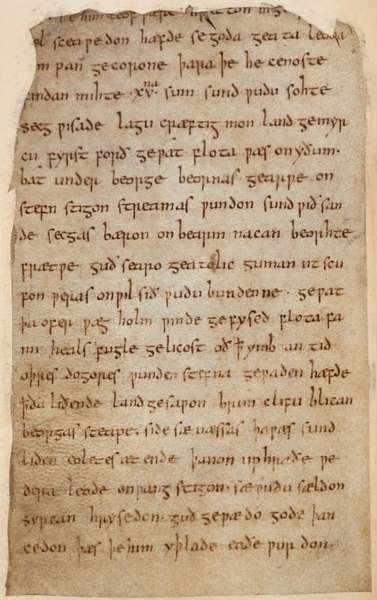 him leof ƿære hƿetton
sceaƿedon hæfde se goda geata leoda
pan gecorone þara þe he cenoste
findan mihte ·xv·na sum sund ƿudu sohte
secg ƿisade lagu cræftig mon land gemyr
cu fyrst forð geƿat flota ƿæs on yðum·
bat under beorge beornas gearƿe on
stefn stigon streamas ƿundon sund ƿið san
de secgas bæron on bearm nacan beorhte
frætƿe guð searo geatolic guman ut scu
fon ƿeras on ƿil sið ƿudu bundenne · geƿat
þa ofer ƿæg holm ƿinde gefysed flota fa
mi heals fugle gelicost oð ꝥ ymb an tid
oþres dogores ƿunden stefna geƿaden hæfde
ꝥ ða liðende land gesaƿon brim clifu blican
beorgas steape· side sænæssas þa ƿæs sund
liden eoletes æt ende þanon up hraðe ƿe
dera leode on ƿang stigon· sæ ƿudu sældon
syrcan hrysedon· guð geƿædo gode þan
cedon þæs þe him yþlade eaðe ƿurdon·